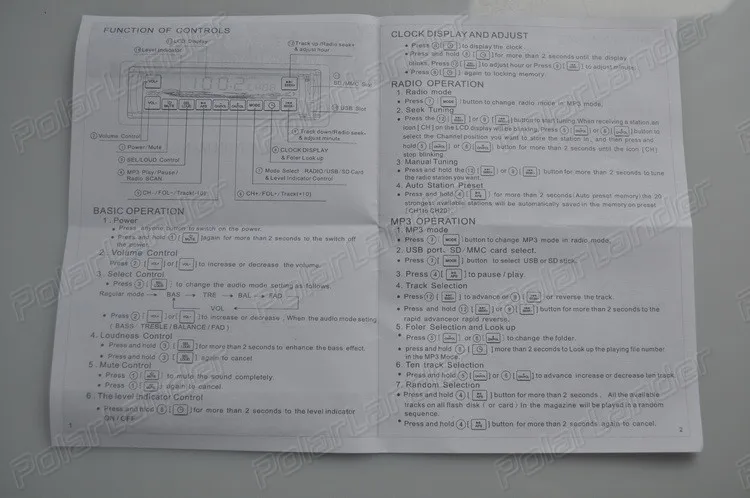 FUNCTION OF CONTROLS
LCD Display
Level indicator
Track up/Radio seek
& adjust hour
SD/MMC Slot
USB Slot
Volume Control
Track down/Radio seek
& adjust minute
Power/Mute
CLOCK DISPLAY
& Foler Look up
SEL/LOUD Control
MP3 Play/Pause/
Radio SCAN
Mode Select RADIO/USB/SD Card
& Level Indicator Control
CH-/FOL-/Track(-10)
CH+/FOL+/Track(+10)
BASIC OPERATION
1. Power
• Press anyone button to switch on the power.
• Press and hold ① [ ] again for more than 2 seconds to the switch off
the power.
2. Volume Control
Press ② [VOL+] or [VOL-] to increase or decrease the volume.
3. Select Control
• Press ③ [ ] to change the audio mode setting as follows.
Regular mode → BAS → TRE → BAL → FAD
VOL
• Press ② [VOL+] or [VOL-] to increase or decrease. When the audio mode setting
(BASS TREBLE/BALANCE/FAD)
4. Loudness Control
• Press and hold ③ [ ] for more than 2 seconds to enhance the bass effect
• Press and hold ③ [ ] again to cancel
5. Mute Control
• Press ① [ ] to mute the sound completely.
• Press ① [ ] again to cancel
6. The level Indicator Control
• Press and hold ⑧ [ ] for more than 2 seconds to the level indicator
ON/OFF
1
CLOCK DISPLAY AND ADJUST
• Press ⑧ [ ] to display the clock
• Press and hold ⑧ [ ] for more than 2 seconds until the display
Press to adjust hour or Press ⑨ [ ] to adjust minute.
• Press ⑧ [ ] again to locking memory.
RADIO OPERATION
1. Radio mode
• Press ⑦ [MODE] button to change radio mode in MP3 mode.
2. Seek Tuning
• Press the ⑫ [ ] or ⑨ [ ] button to start tuning. When receiving a station, an
icon [CH] on the LCD display will be blinking. Press ⑤ [ ] or ⑥ [ ] button to
select the Channel position you want to store the station in, and then press and
hold ⑤ [ ] or ⑥ [ ] button for more than 2 seconds until the icon [CH]
stop blinking
3. Manual Tuning
• Press and hold the ⑫ [ ] or ⑨ [ ] button for more than 2 seconds to tune
the radio station you want.
4. Auto Station Preset
• Press and hold ④ [ ] for more than 2 seconds (Auto preset memory) the 20
strongest available stations will be automatically saved in the memory on preset
[CH1 to CH20]
MP3 OPERATION
1. MP3 mode
• Press ⑦ [MODE] button to change MP3 mode in radio mode.
2. USB port, SD/MMC card select.
• Press ⑦ [MODE] button to select USB or SD stick.
3. Press ④ [ ] to pause / play.
4. Track Selection
Press ⑫ [ ] to advance or ⑨ [ ] or reverse the track.
• Press and hold ⑫ [ ] or ⑨ [ ] button for more than 2 seconds to the
rapid advance or rapid reverse.
5. Foler Selection and Look up
• Press ⑤ [ ] or ⑥ [ ] to change the folder.
• press and hold ⑧ [ ] more than 2 seconds to Look up the playing file number
in the MP3 Mode
6. Ten track Selection
• Press and hold ⑤ [ ] or ⑥ [ ] to advance increase or decrease ten track.
7. Random Selection
• Press and hold ④ [ ] button for more than 2 seconds. All the available
tracks on all flash disk ( or card ) In the magazine will be played in a random
sequence.
• Press and hold ④ [ ] button for more than 2 seconds again to cancel.
2
PolarLander